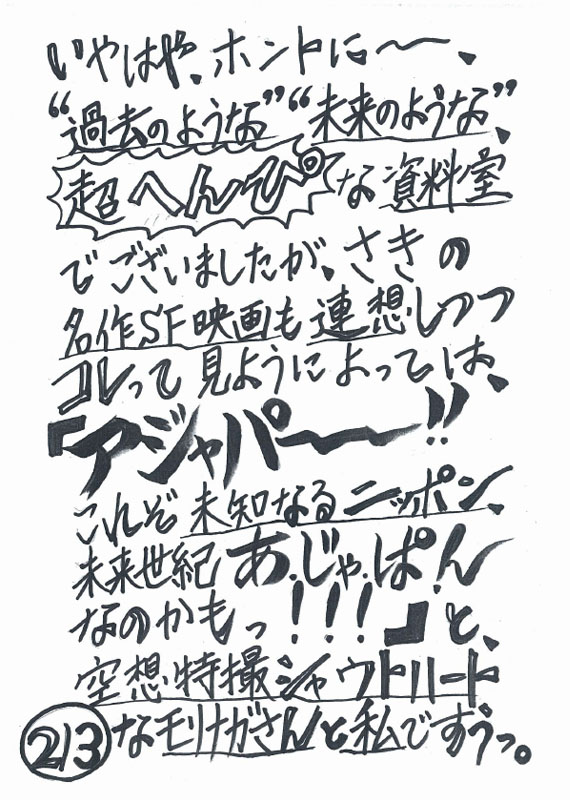 いやはや、ホントに〜〜、
“過去のような”“未来のような”、
超へんぴな資料室
でございましたが、さきの
名作SF映画も連想しつつ
コレって見ようによっては、
『アジャパ〜〜〜!!
これぞ未知なるニッポン、
未来世紀あ.じゃ.ぱ.ん
なのかもっ!!!』と、
空想特撮シャウトハート
213なモリナガさんと私ですぅっ。